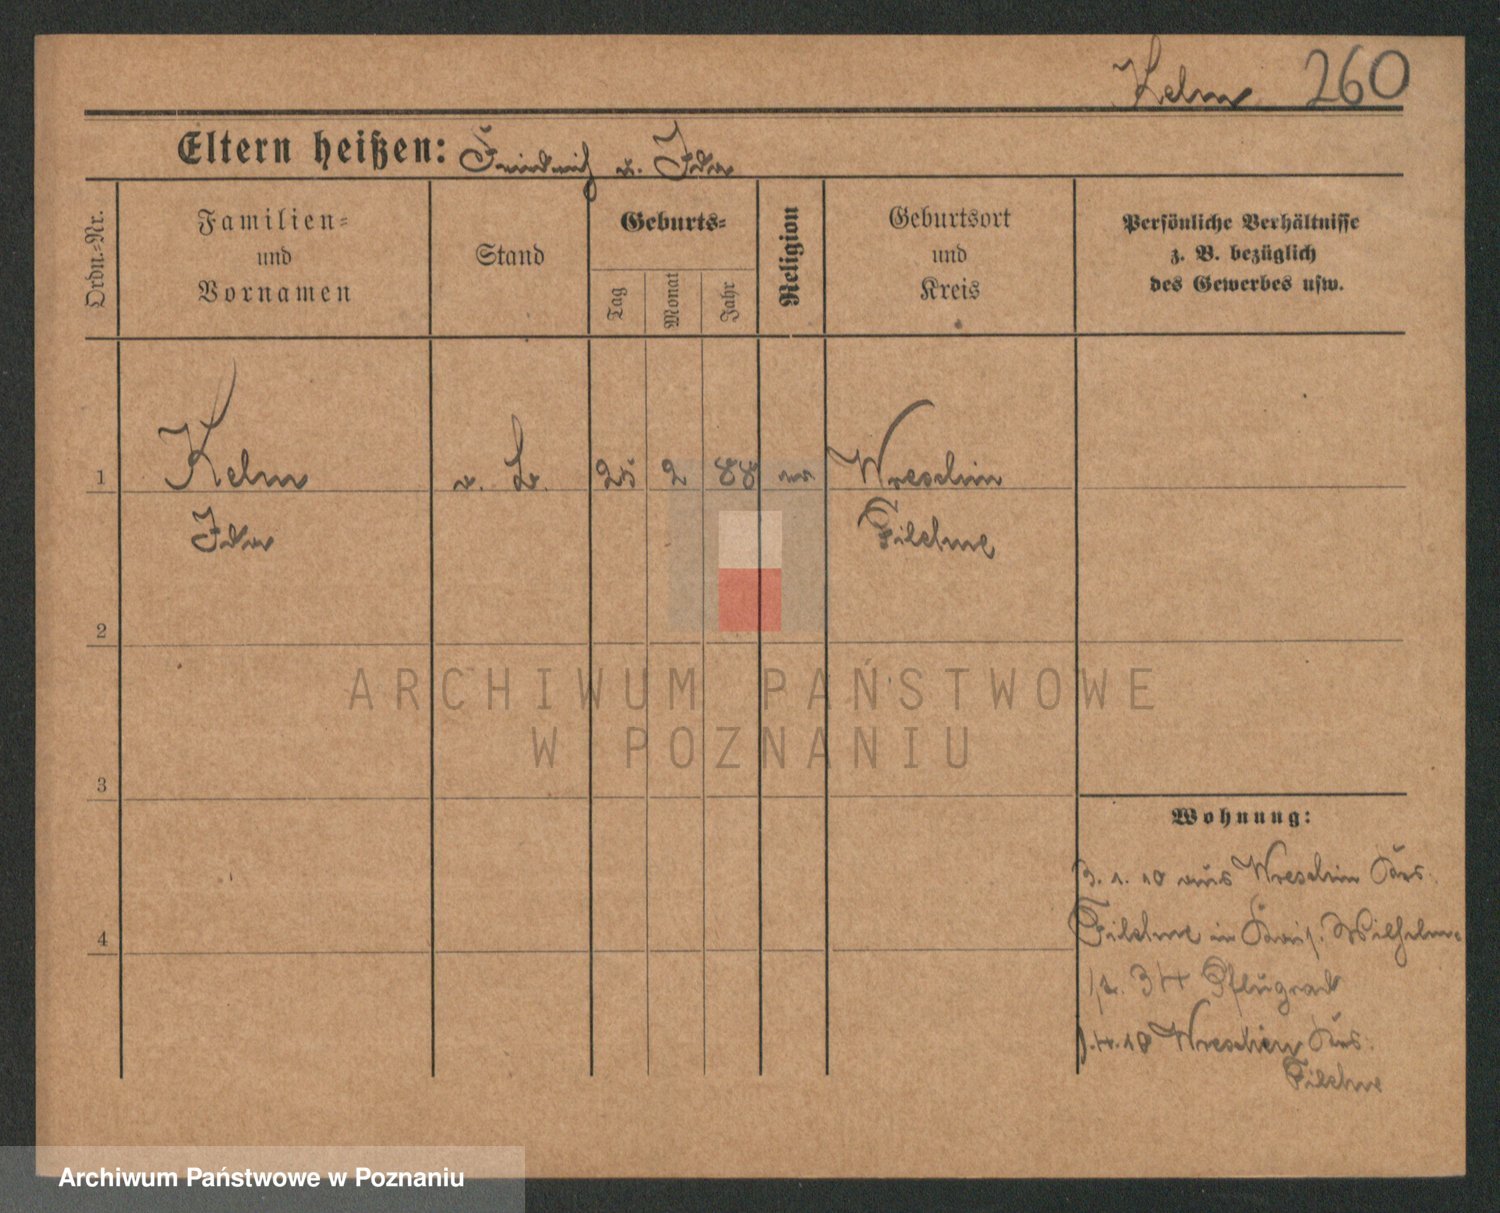 Kelm 260
Eltern heißen: Friedrich u. Ida
Ordn.-Nr.
Familien-
und
Vornamen
Stand
Geburts-
Tag
Monat
Jahr
Religion
Geburtsort
und
Kreis
Persönliche Verhältnisse
z. B. bezüglich
des Gewerbes usw.
1 Kelm 25 2 88 Wreschin
Ida Filehne
2
3
4
Wohnung:
3. 1. 10 aus Wreschin Krs.
Filehne in Kais. Wilhelm-
str. 34 Pflugrad
4. 18 Wreschin Krs.
Filehne
ARCHIWUM PAŃSTWOWE
W POZNANIU
Archiwum Państwowe w Poznaniu